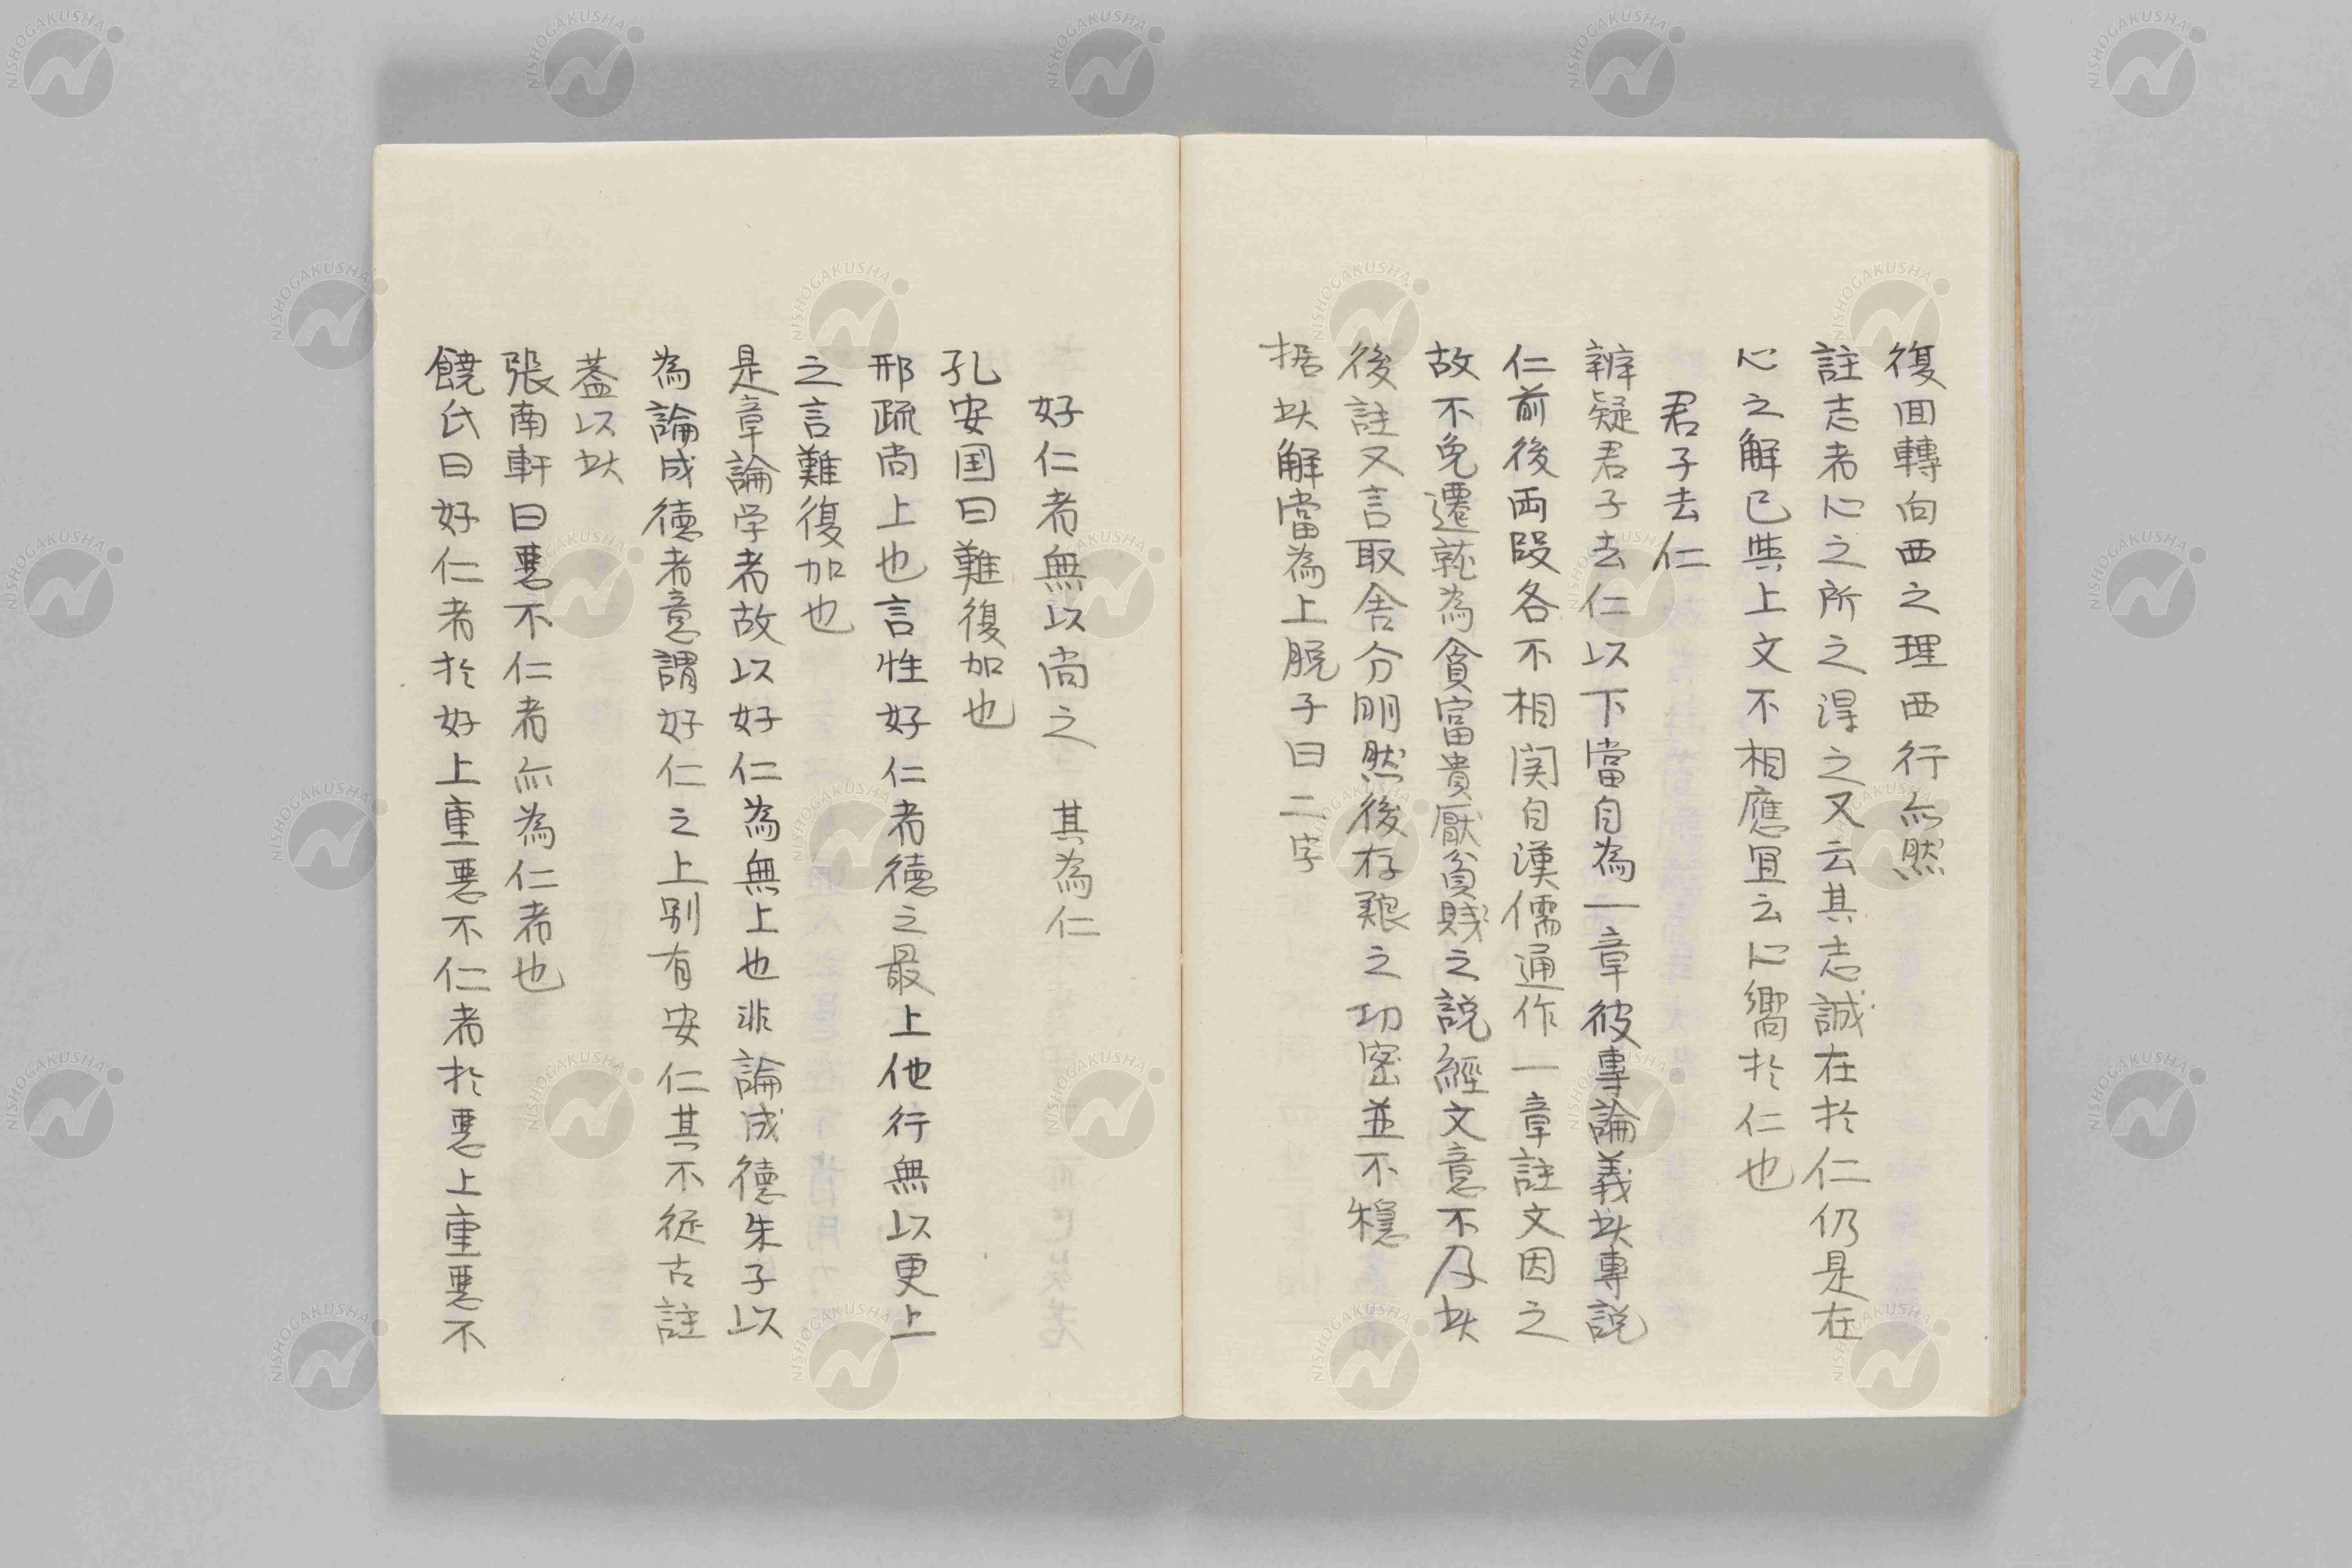 復回轉向西之理西行亦然
註志者心之所之淂之又云其志誠在於仁仍是在
心之解已與上文不相應宜云心嚮於仁也
君子去仁
辨疑君子去仁以下當自為一章彼專論義此專説
仁前後両段各不相関自漢儒通作一章註文因之
故不免遷就為貪富貴厭貧賤之説經文意不及此
後註又言取舍分明然後存養之功密並不穏
据此解當為上脱子曰二字
好仁者無以尚之　其為仁
孔安国曰難復加也
邢疏尚上也言性好仁者德之最上他行無以更上
之言難復加也
是章論学者故以好仁為無上也非論成德朱子以
為論成德者意謂好仁之上別有安仁其不從古註
蓋以此
張南軒曰惡不仁者亦為仁者也
饒氏曰好仁者於好上重惡不仁者於惡上重惡不
NISHOGAKUSHA